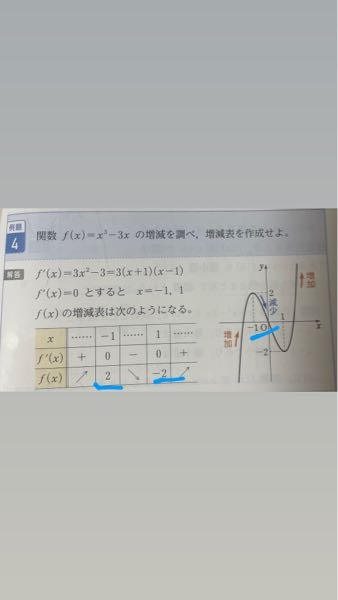 例題 4
関数 f(x)=x³−3x の増減を調べ,増減表を作成せよ。
解答
f′(x)=3x²−3=3(x+1)(x−1)
f′(x)=0 とすると x=−1, 1
f(x) の増減表は次のようになる。
x …… −1 …… 1 ……
f′(x) + 0 − 0 +
f(x) ↗ 2 ↘ −2 ↗
y
増加
2
減少
−1 O 1 x
増加
−2